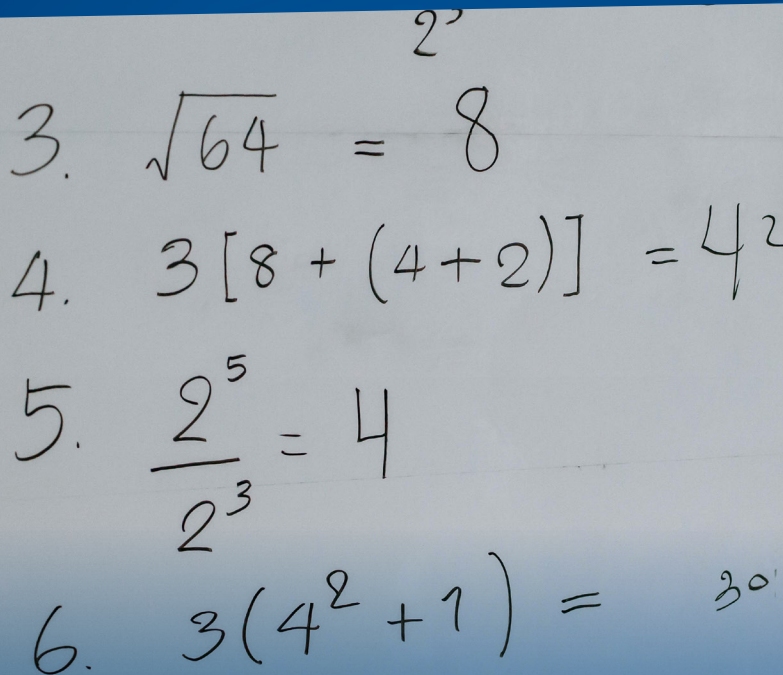 2³
3. √64 = 8
4. 3[8 + (4+2)] = 42
5. 2⁵/2³ = 4
6. 3(4² + 1) = 30